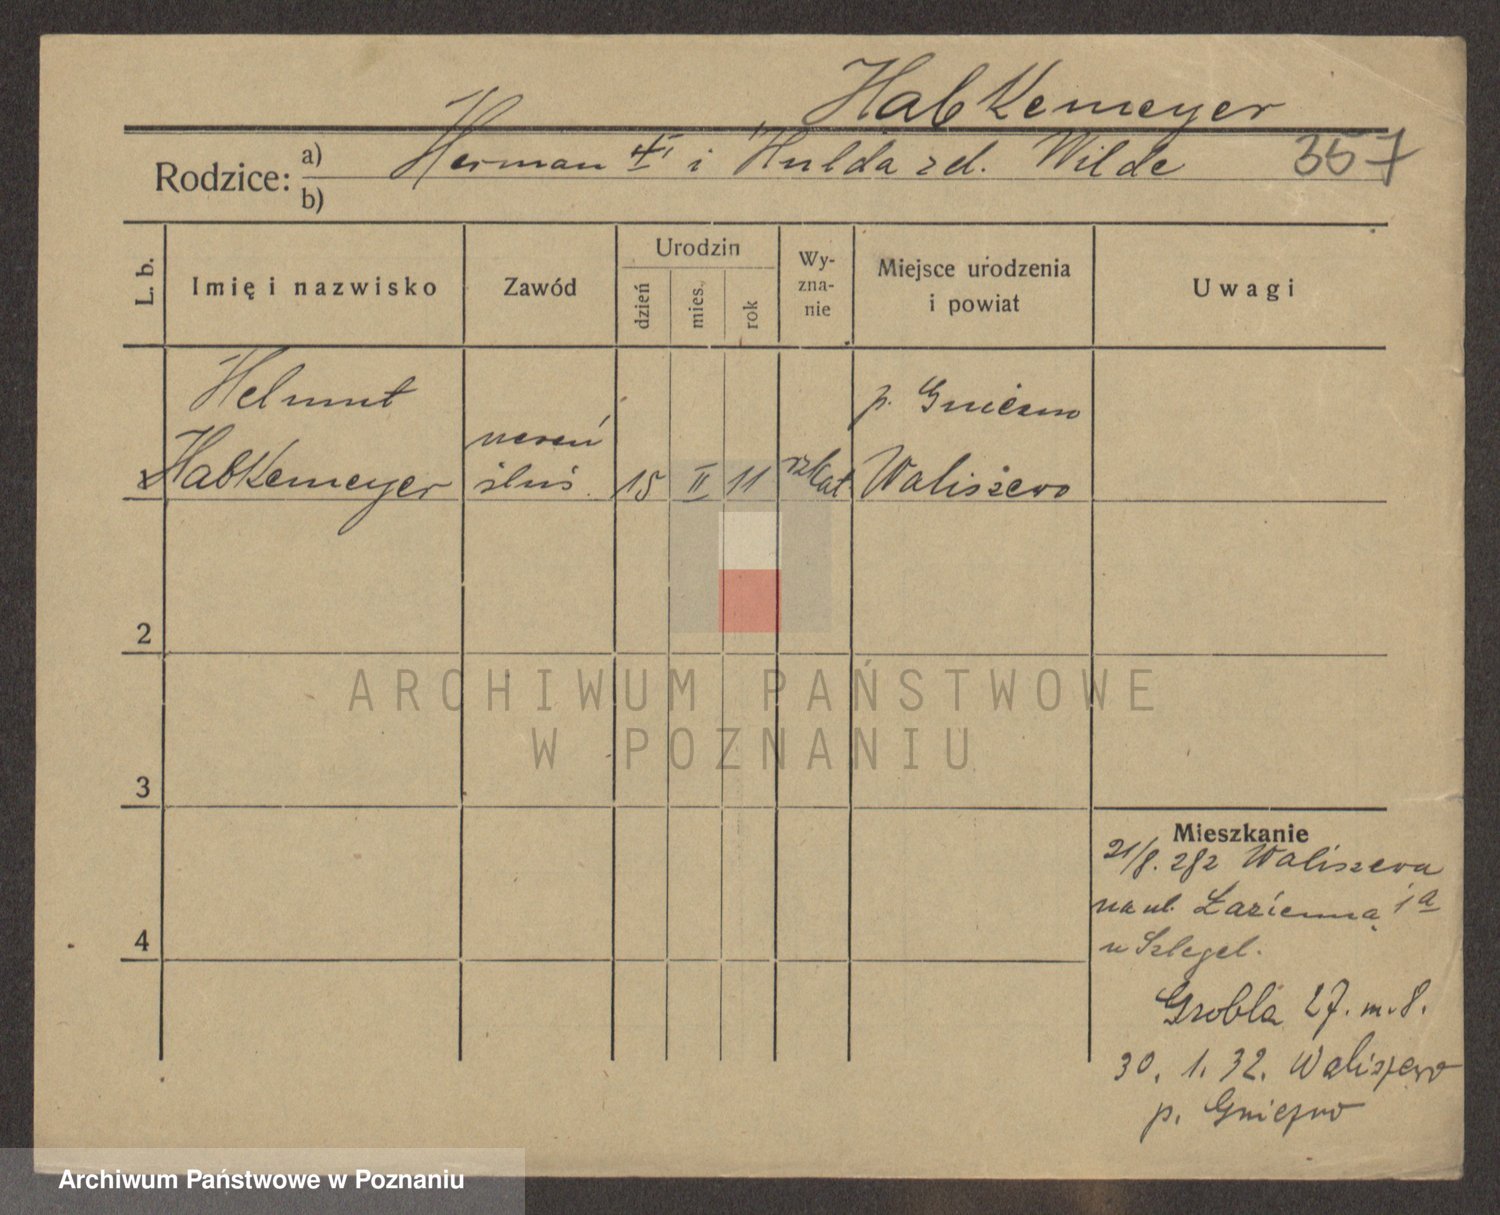 Habkemeyer
Rodzice: a) Herman i Hulda zd. Wilde 357
b)
L. b.
Imię i nazwisko
Zawód
Urodzin
dzień
mies.
rok
Wy-
zna-
nie
Miejsce urodzenia
i powiat
Uwagi
Helmut
Habkemeyer
uczeń
ślus.
15 II 11
rzkat
p. Gniezno
Waliszewo
2
3
4
ARCHIWUM PAŃSTWOWE
W POZNANIU
Mieszkanie
21/8. 282 Waliszewa
na ul. Łazienną 1a
u Szlegel.
Grobla 27. m. 8.
30. 1. 32. Waliszewo
p. Gniezno
Archiwum Państwowe w Poznaniu